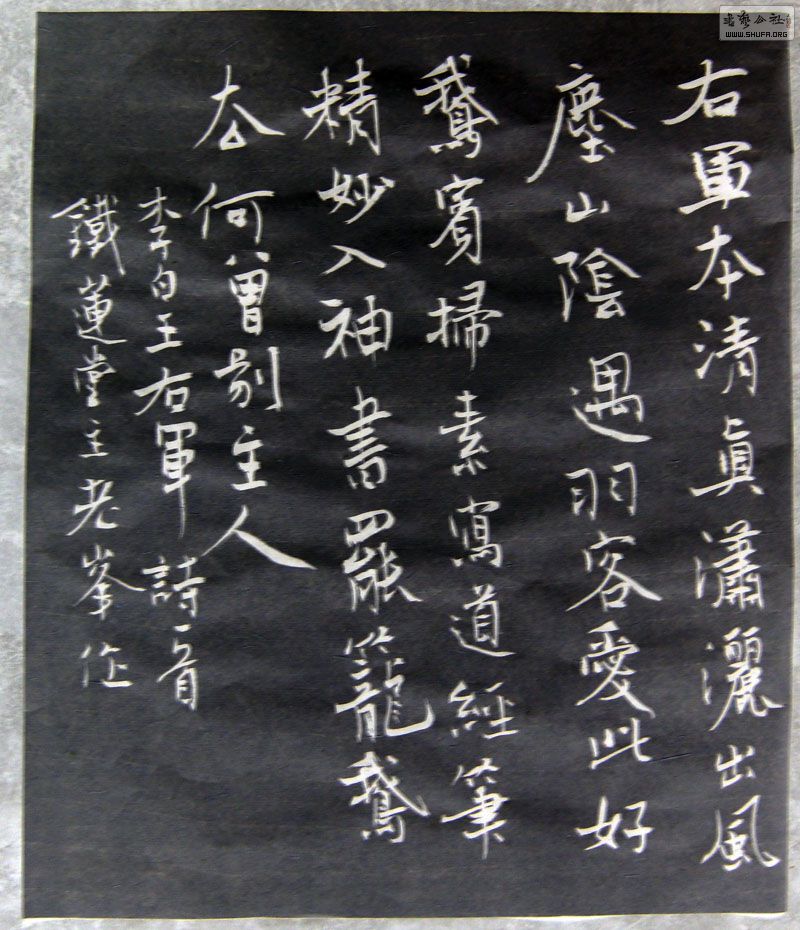 右軍本清真瀟灑出風
塵山陰遇羽客愛此好
鵝賓掃素寫道經筆
精妙入神書罷籠鵝
去何曾別主人
李白王右軍詩一首
鐵蓮堂主老峯作
書藝公社
WWW.SHUFA.ORG